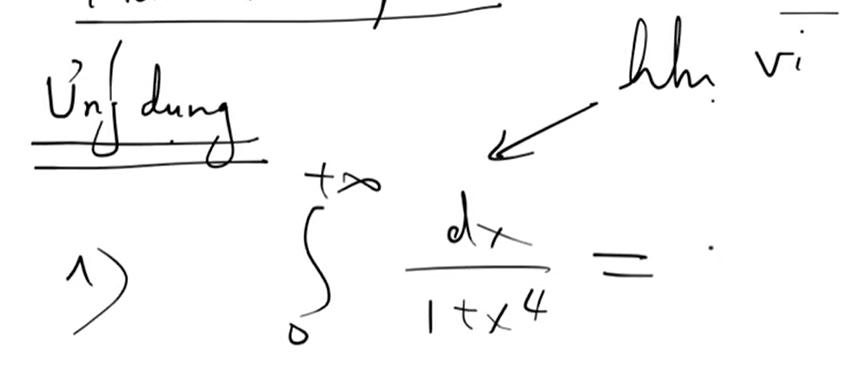 Ứng dụng
hh vi
1) ∫₀^{+∞} dx/(1+x⁴) =